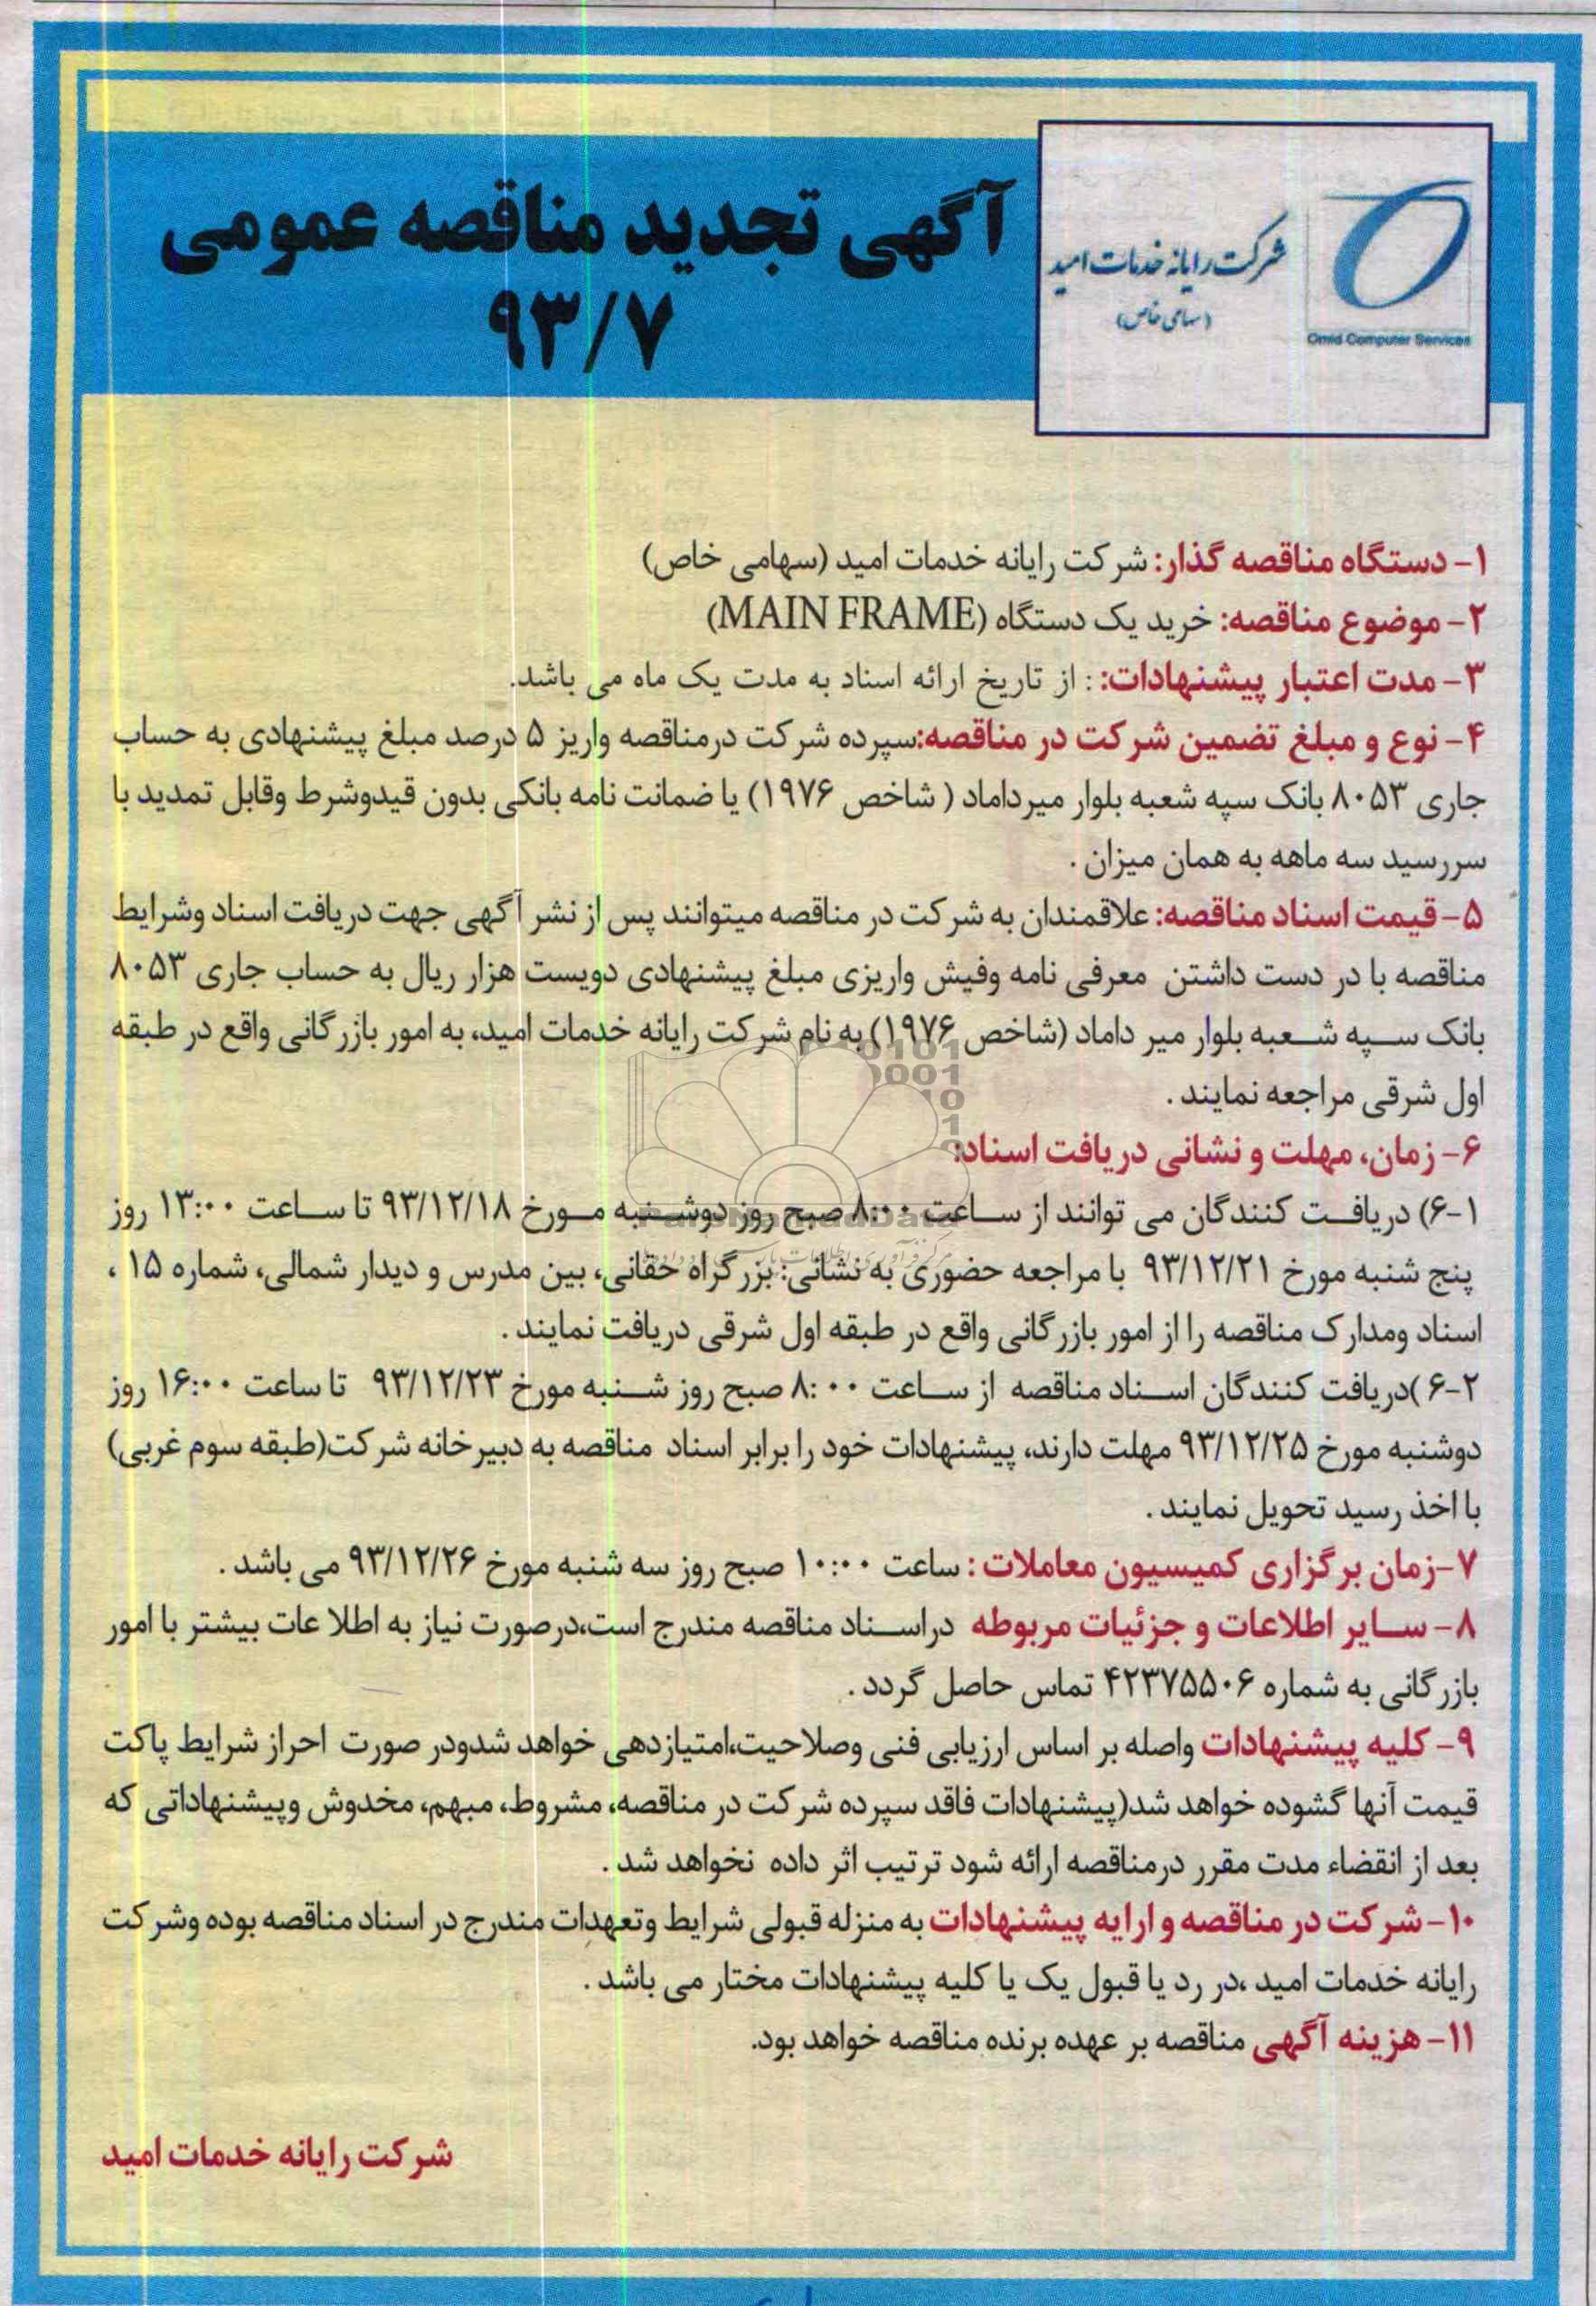 شرکت رایانه خدمات امید
(سهامی خاص)
Omid Computer Services
آگهی تجدید مناقصه عمومی
۹۳/۷
۱- دستگاه مناقصه گذار: شرکت رایانه خدمات امید (سهامی خاص)
۲- موضوع مناقصه: خرید یک دستگاه (MAIN FRAME)
۳- مدت اعتبار پیشنهادات: : از تاریخ ارائه اسناد به مدت یک ماه می باشد.
۴- نوع و مبلغ تضمین شرکت در مناقصه:سپرده شرکت درمناقصه واریز ۵ درصد مبلغ پیشنهادی به حساب
جاری ۸۰۵۳ بانک سپه شعبه بلوار میرداماد ( شاخص ۱۹۷۶) یا ضمانت نامه بانکی بدون قیدوشرط وقابل تمدید با
سررسید سه ماهه به همان میزان .
۵- قیمت اسناد مناقصه: علاقمندان به شرکت در مناقصه میتوانند پس از نشر آگهی جهت دریافت اسناد وشرایط
مناقصه با در دست داشتن معرفی نامه وفیش واریزی مبلغ پیشنهادی دویست هزار ریال به حساب جاری ۸۰۵۳
بانک سپه شعبه بلوار میر داماد (شاخص ۱۹۷۶) به نام شرکت رایانه خدمات امید، به امور بازرگانی واقع در طبقه
اول شرقی مراجعه نمایند .
۶- زمان، مهلت و نشانی دریافت اسناد:
۶-۱) دریافت کنندگان می توانند از ساعت ۸:۰۰ صبح روز دوشنبه مورخ ۹۳/۱۲/۱۸ تا ساعت ۱۳:۰۰ روز
پنج شنبه مورخ ۹۳/۱۲/۲۱ با مراجعه حضوری به نشانی: بزرگراه حقانی، بین مدرس و دیدار شمالی، شماره ۱۵ ،
اسناد ومدارک مناقصه را از امور بازرگانی واقع در طبقه اول شرقی دریافت نمایند .
۶-۲ )دریافت کنندگان اسناد مناقصه از ساعت ۸:۰۰ صبح روز شنبه مورخ ۹۳/۱۲/۲۳ تا ساعت ۱۶:۰۰ روز
دوشنبه مورخ ۹۳/۱۲/۲۵ مهلت دارند، پیشنهادات خود را برابر اسناد مناقصه به دبیرخانه شرکت(طبقه سوم غربی)
با اخذ رسید تحویل نمایند .
۷-زمان برگزاری کمیسیون معاملات : ساعت ۱۰:۰۰ صبح روز سه شنبه مورخ ۹۳/۱۲/۲۶ می باشد .
۸- سایر اطلاعات و جزئیات مربوطه دراسناد مناقصه مندرج است،درصورت نیاز به اطلا عات بیشتر با امور
بازرگانی به شماره ۴۲۳۷۵۵۰۶ تماس حاصل گردد .
۹- کلیه پیشنهادات واصله بر اساس ارزیابی فنی وصلاحیت،امتیازدهی خواهد شدودر صورت احراز شرایط پاکت
قیمت آنها گشوده خواهد شد(پیشنهادات فاقد سپرده شرکت در مناقصه، مشروط، مبهم، مخدوش وپیشنهاداتی که
بعد از انقضاء مدت مقرر درمناقصه ارائه شود ترتیب اثر داده نخواهد شد .
۱۰- شرکت در مناقصه و ارایه پیشنهادات به منزله قبولی شرایط وتعهدات مندرج در اسناد مناقصه بوده وشرکت
رایانه خدمات امید ،در رد یا قبول یک یا کلیه پیشنهادات مختار می باشد .
۱۱- هزینه آگهی مناقصه بر عهده برنده مناقصه خواهد بود.
شرکت رایانه خدمات امید